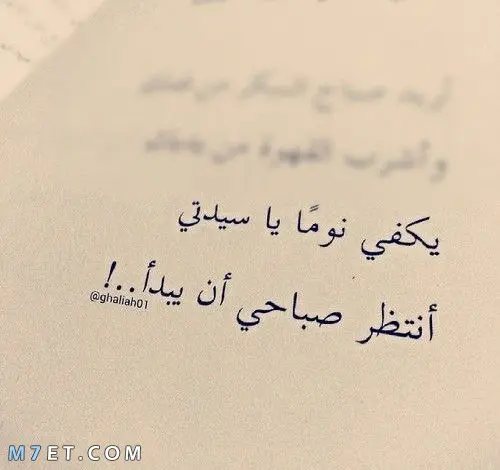 أريد صباح السكر من فمك
وأشرب القهوة من يديك
يكفي نومًا يا سيدتي
أنتظر صباحي أن يبدأ..!
@ghaliah01
M7ET.COM